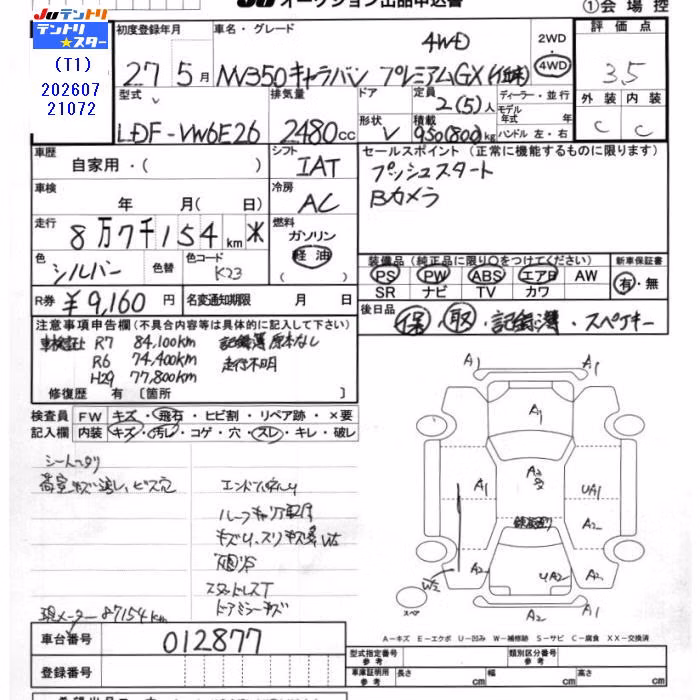 JU オークション出品申込書
①会場控
JUテントリ
テントリ
★スター
(T1)
202607
21072
初度登録年月
27 5月
車名・グレード
4WD
NV350キャラバン プレミアムGX
2WD
・
4WD
評価点
3.5
型式
LDF-VW6E26
排気量
2480cc
ドア
形状 V
定員
2(5)人
積載
950(800)kg
ディーラー・並行
モデル
年式 年
ハンドル 左・右
外装 内装
C C
車歴
自家用・( )
シフト
IAT
セールスポイント(正常に機能するものに限ります)
プッシュスタート
Bカメラ
車検
年 月( 日)
冷房
AC
走行
8万7千154km ※
燃料
ガソリン
軽油
色
シルバー
色替
色コード
K23
装備品(純正品に限り○をつけてください)
PS PW ABS エアB AW
SR ナビ TV カワ
新車保証書
有・無
R券 ¥9,160円
名変通知期限 月 日
後日品
保・取・記録簿・スペアキー
注意事項申告欄(不具合内容等は具体的に記入して下さい)
車検証 R7 84,100km 記録簿原本なし
R6 74,400km 走行不明
H29 77,800km
修復歴 有 〔箇所 〕
検査員
記入欄
FW キズ・飛石・ヒビ割・リペア跡・×要
内装 キズ・汚レ・コゲ・穴・スレ・キレ・破レ
シートヘタリ
荷室キズ凹し、ビス穴
ルーフキャリア
スタットレスT
ドアミラーキズ
現メーター87154km
A1 A1
A1
A2
A1
UA1
A2
A2
UA2
A2
W2
A2 A1
スペア
A-キズ E-エクボ U-凹み W-補修跡 S-サビ C-腐食 XX-交換済
車台番号
012877
登録番号
型式指定番号
参考
類別区分番号
参考
車庫証明用
参考
長さ cm
幅 cm
高さ cm